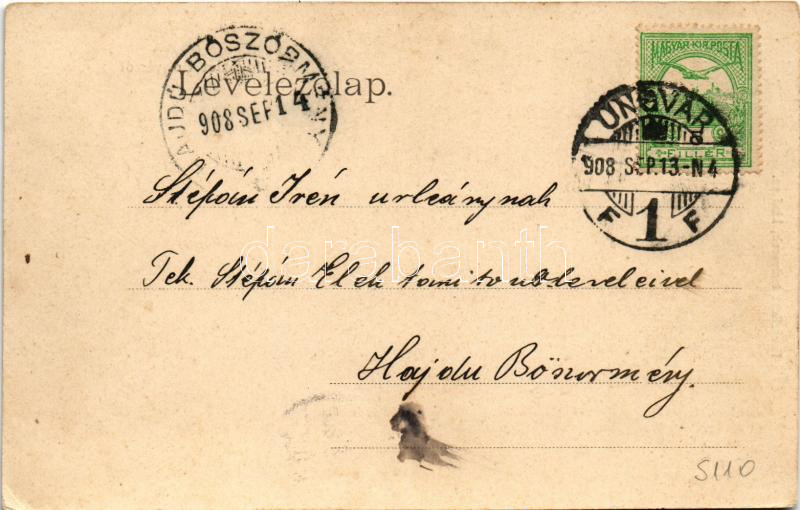 MAGYAR KIR. POSTA
FILLÉR
HAJDÚ BÖSZÖRMÉNY
908 SEP 14
Levelezőlap.
UNGVÁR
908 SEP.13.-N4
F 1 F
Stépán Irén urleánynak
Tek. Stépán Elek tanitó ur
Hajdu Böszörmény.
darabanth.com
S110